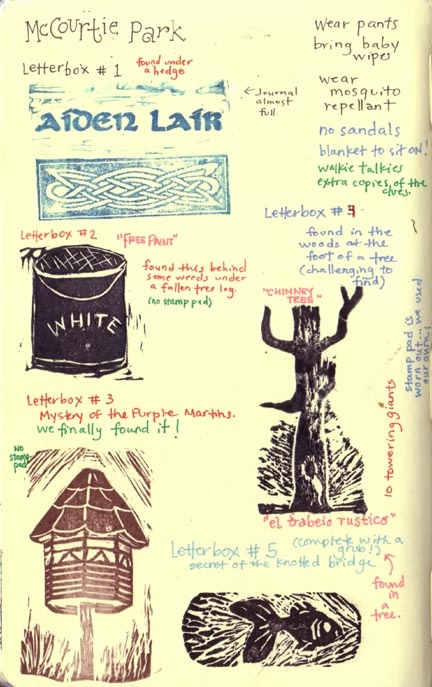 McCourtie Park
Letterbox # 1
found under
a hedge
AIDEN LAIR
← Journal
almost
full.
Wear pants
bring baby
wipes
wear
mosquito
repellant
no sandals
blanket to sit ON!
walkie talkies
extra copies of the
clues.
Letterbox #2
"FREE PAINT"
found this behind
some weeds under
a fallen tree log.
(no stamp pad)
WHITE
Letterbox # 3
Mystery of the Purple Martins.
We finally found it!
No
stamp
pad
Letterbox #
found in the
woods at the
foot of a tree
(challenging to
find)
"CHIMNEY
TREE"
stamp pad is
worn out... we used
our own!
10 towering giants
"el trabeio rustico"
(complete with a
grub!)
Letterbox # 5
secret of the knotted bridge
found
in
a
tree.